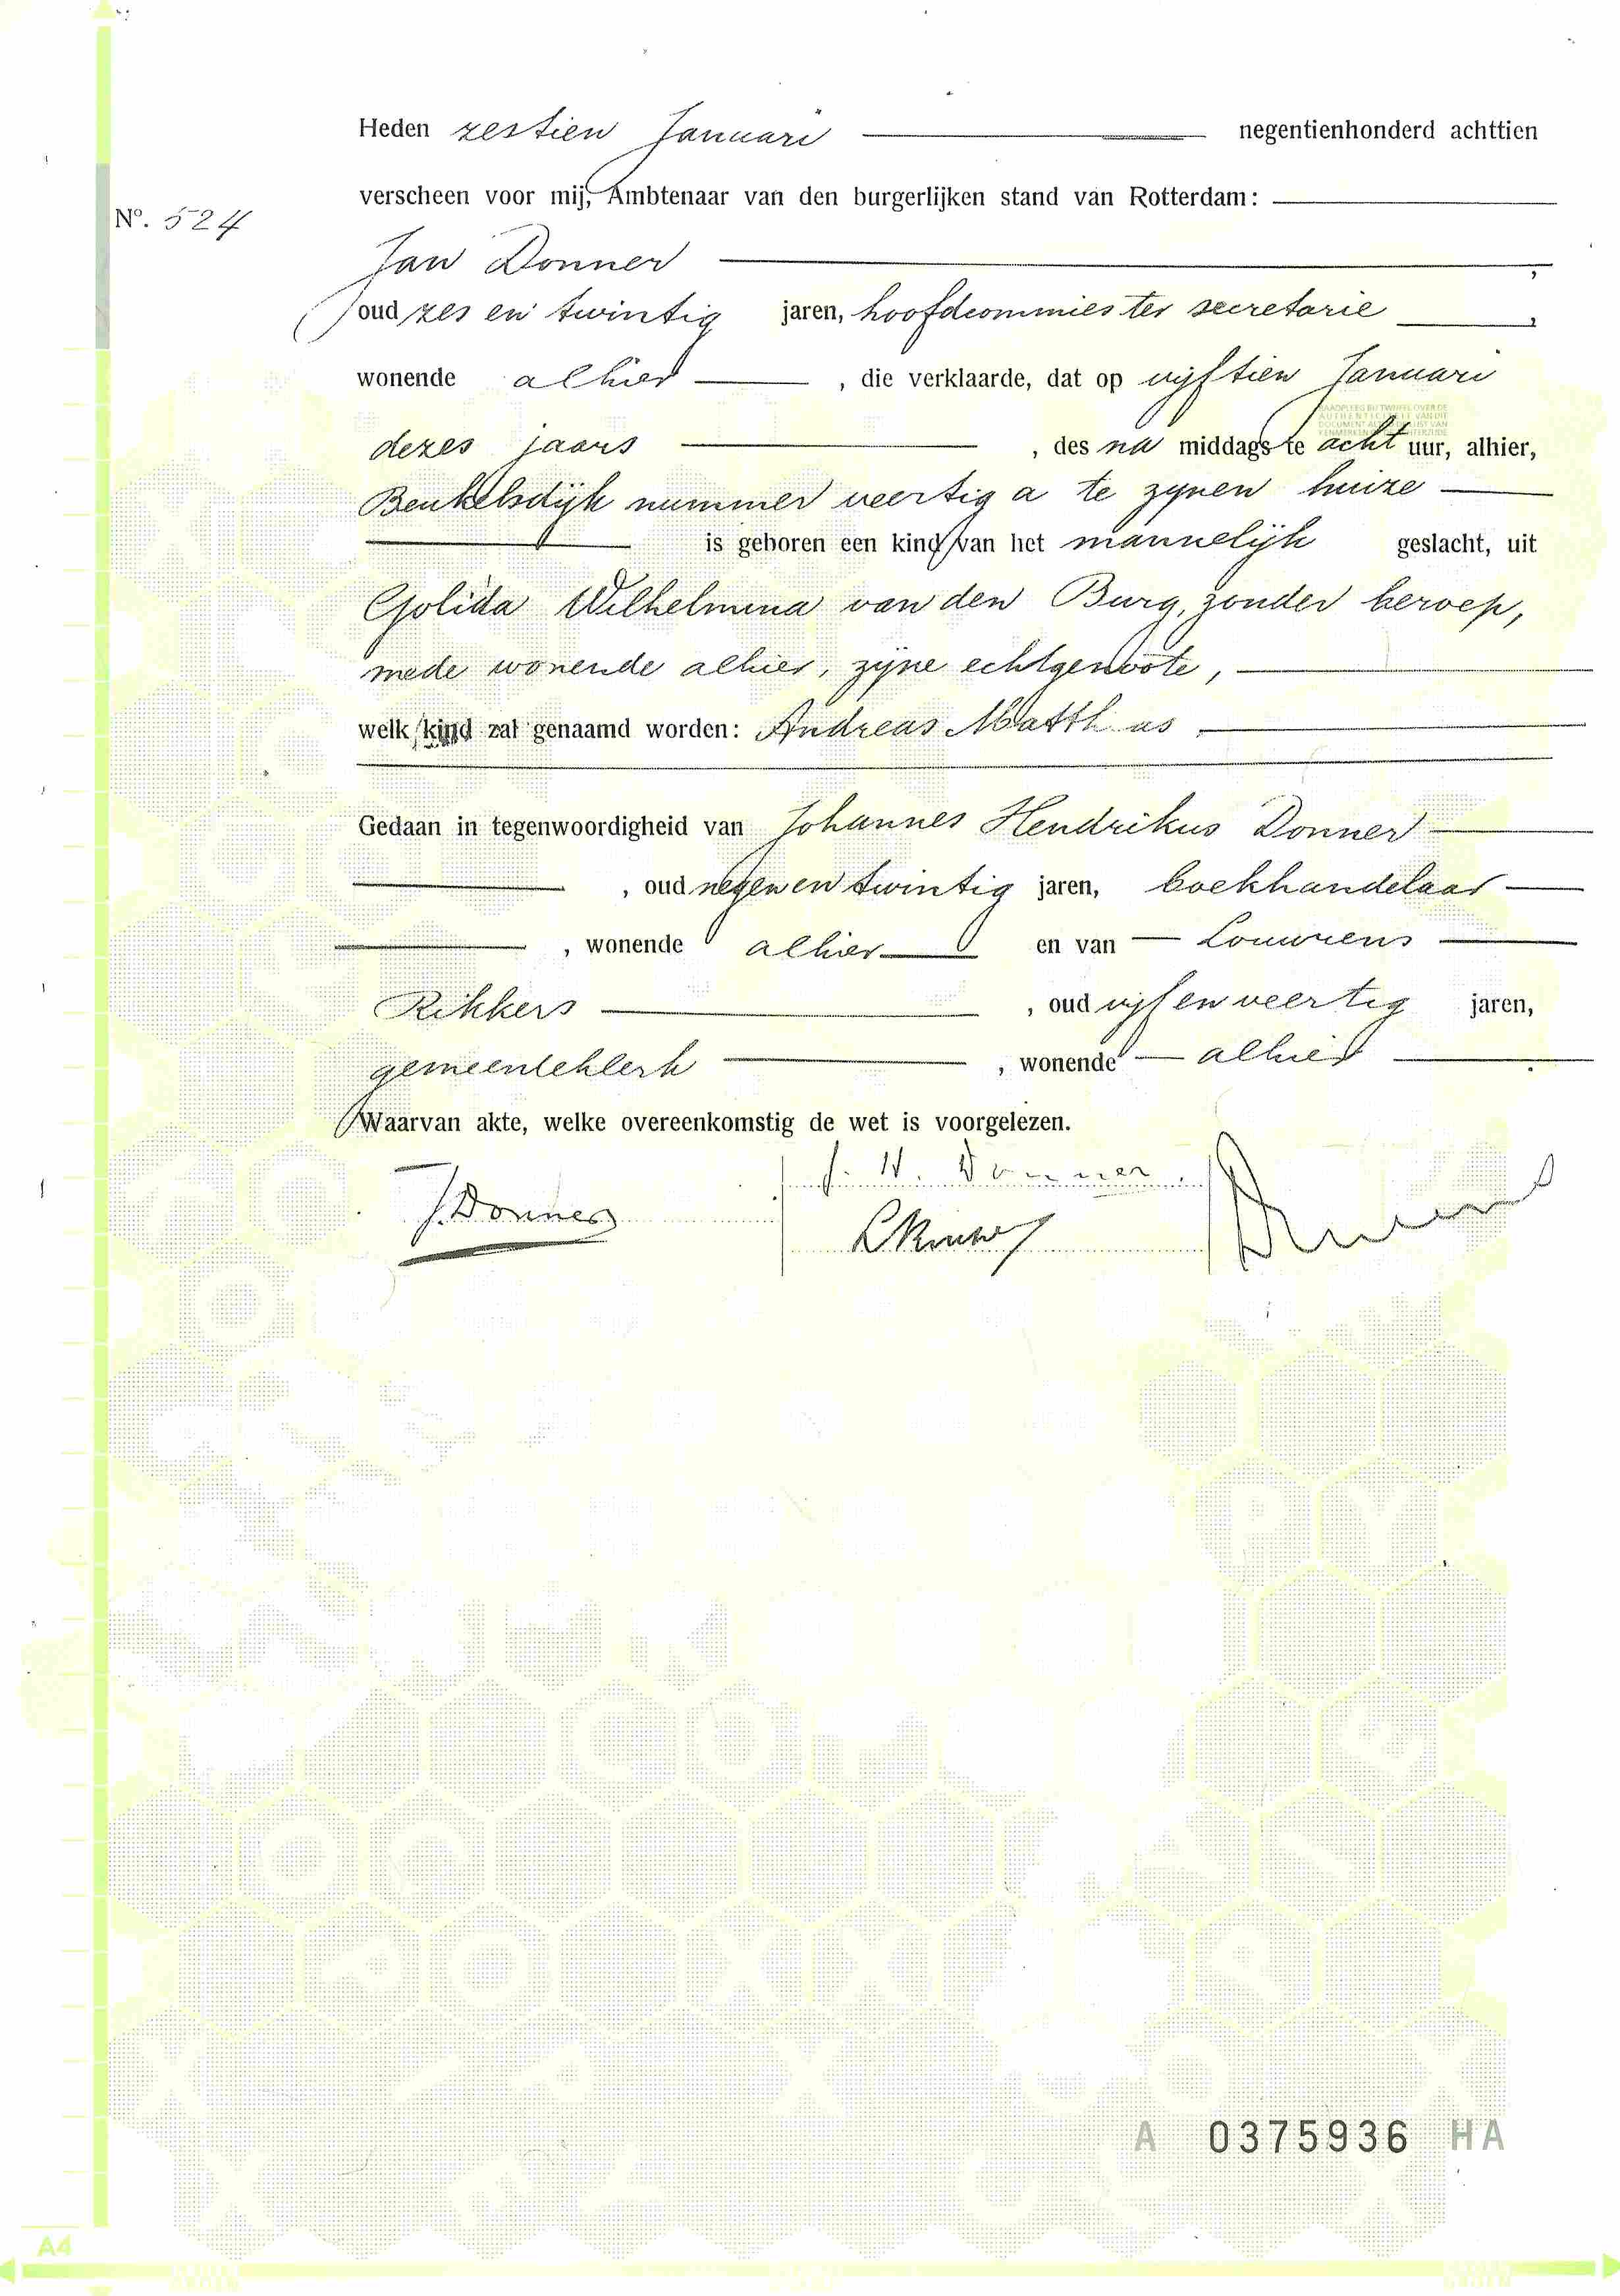 Heden zestien Januari negentienhonderd achttien
verscheen voor mij, Ambtenaar van den burgerlijken stand van Rotterdam:
No. 524
Jan Donner ,
oud zes en twintig jaren, hoofdcommies ter secretarie ,
wonende alhier , die verklaarde, dat op vijftien Januari
dezes jaars , des na middags te acht uur, alhier,
Beukelsdijk nummer veertig a te zijnen huize
is geboren een kind van het mannelijk geslacht, uit
Golida Wilhelmina van den Burg, zonder beroep,
mede wonende alhier, zijne echtgenoote,
welk kind zal genaamd worden: Andreas Matth as
Gedaan in tegenwoordigheid van Johannes Hendrikus Donner
, oud negen en twintig jaren, boekhandelaar
, wonende alhier en van Louwrens
Rikkers , oud vijf en veertig jaren,
gemeenteklerk , wonende alhier .
Waarvan akte, welke overeenkomstig de wet is voorgelezen.
J. H. Donner
J. Donner
A 0375936 HA
A4